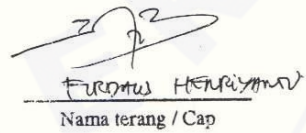 FIRDAUS HENRIYANTO
Nama terang / Cap